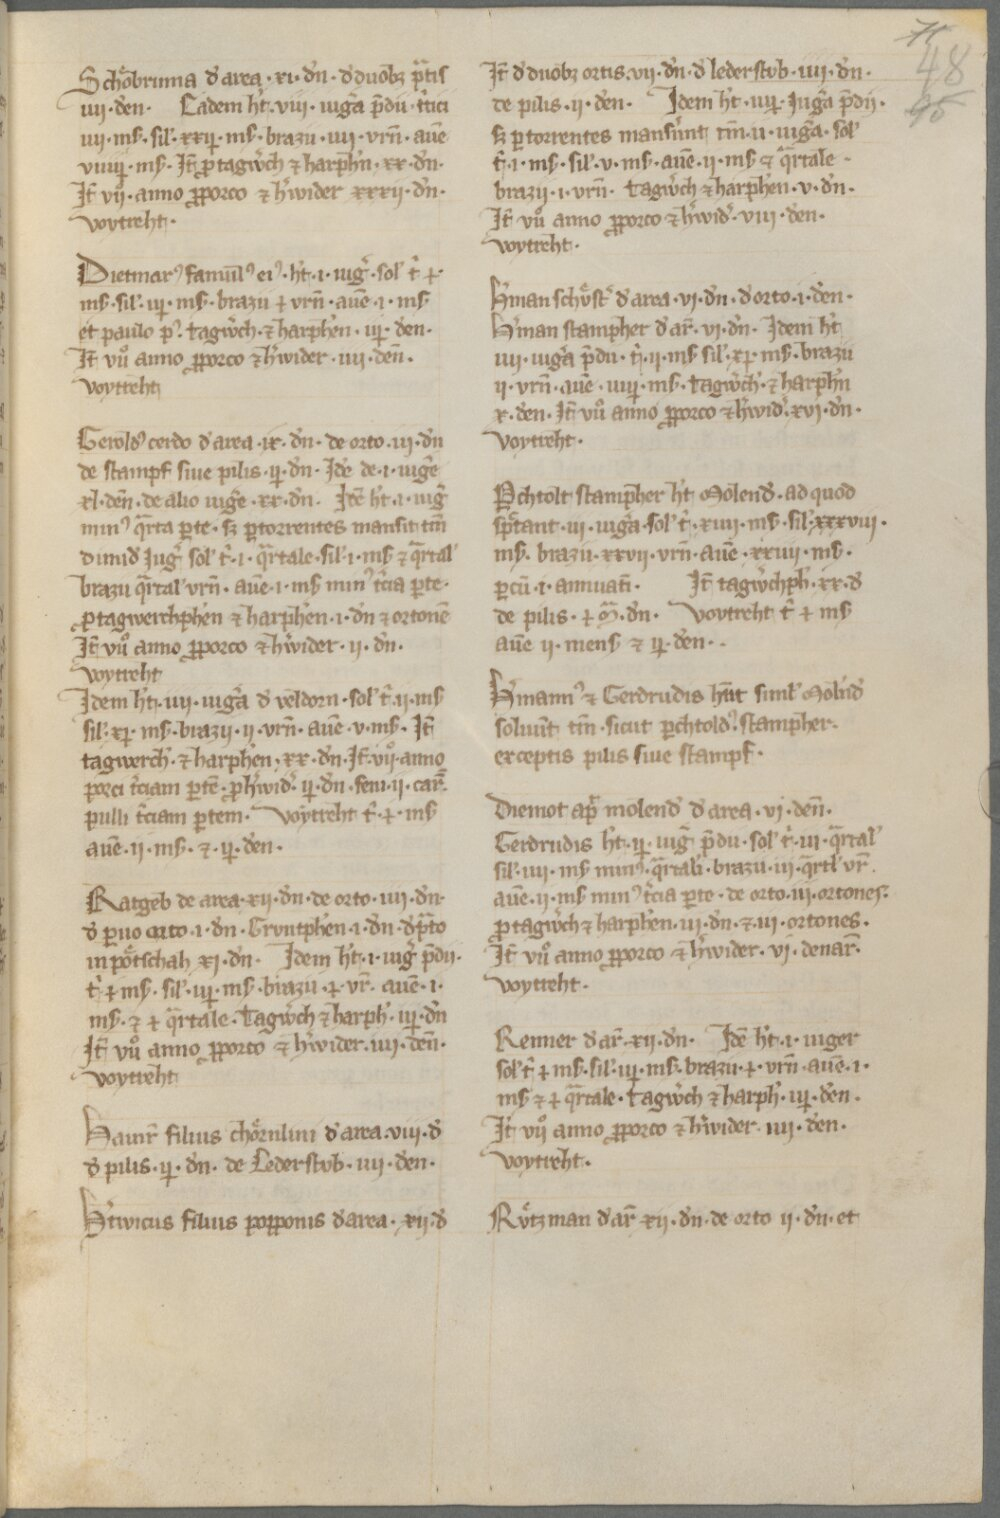 Schoͤbrunna d̕ area · xi · dn̄ · d̕ duob; p̄tis
iiii · den · Eadem h̕t · viii · iug̕a p̄dii · t̕tici
iiii · ms̄ · sil̕ · xxij · ms̄ · brazii · iiii · vrn̄ · auē
viiij · ms̄ · It̄ p tagw̕ch ⁊ harph̕n · xx · dn̄ ·
It̄ vijͦ · anno p porco ⁊ h̕wider xxxii · dn̄ ·
voytreht ·
Dietmar⁹ famul⁹ ei⁹ · h̕t · i · iug̕ · sol̕ t̕ ɟ ·
ms̄ · sil̕ · iij · ms̄ · brazii ɟ vrn̄ · auē · i · ms̄
et paulo p⁹ · tagw̕ch · ⁊ harph̕en · iij · den ·
It̄ vijͦ anno p porco ⁊ h̕wider · iiii · den̄ ·
voytreht
Gerold⁹ cerdo d̕ area · ix · dn̄ · de orto · iii · dn̄
de stampf siue pilis · ij · dn̄ · Idē de · i · iug̕e
xl · den̄ · de alio iug̕e · xx · dn̄ · Idē h̕t · i · iug̕
min⁹ q̄rta p̱te · s; p̱ torrentes mansit tm̄
dimid̕ Iug̕ sol̕ t̕ · i · q̄rtale · sil̕ · i · ms̄ ⁊ q̄rtal̕
brazii q̄rtal̕ vrn̄ · auē · i · ms̄ min⁹ t̕cia p̱te ·
p tagwerchph̕en ⁊ harph̕en · i · dn̄ ⁊ ortonē
It̄ vijͦ anno p porco ⁊ h̕wider · ii · dn̄ ·
voytreht
Idem h̕t · iiii · iug̕a d̕ veldorn · sol̕ t̕ · ii · ms̄
sil̕ · xj · ms̄ · brazii · ii · vrn̄ · auē · v · ms̄ · It̄
tagwerch · ⁊ harph̕en · xx · dn̄ · It̄ · vijͦ · anno
porci t̕ciam p̱tē · p h̕wid̕ · ij · dn̄ · feni · ii · car̄
pulli t̕ciam p̱tem · voytreht t̕ · ɟ · ms̄
auē · ii · ms̄ · ⁊ · ij · den ·
Ratgeb de area · xii · dn̄ · de orto · iiii · dn̄ ·
d̕ p̱uo orto · i · dn̄ · Grvntph̕en · i · dn̄ · d̕ p̄to
in poͤtschah xi · dn̄ · Idem h̕t · i · iug̕ p̄dii ·
t̕ ɟ ms̄ · sil̕ · iij · ms̄ · brazii · ɟ · vr̄ · auē · i ·
ms̄ · ⁊ ɟ q̄rtale · tagw̕ch ⁊ harph̕ · iij · dn̄
It̄ vijͦ anno p porco ⁊ h̕wider · iiii · den̄ ·
voytreht
Havnr̄ filius choͤrnlini d̕ area · viii · d̕
d̕ pilis · ij · dn̄ · de Lederstvb · iiii · den ·
H̕twicus filius popponis d̕ area · xii · d̕
It̄ d̕ duob; ortis · vii · dn̄ · d̕ lederstvb · iiii · dn̄ ·
de pilis · ii · den · Idem h̕t · iiij · Iug̕a p̄dij ·
s; p̱ torrentes mans̕unt tm̄ · ii · iug̕a · sol̕
t̕ · i · ms̄ · sil̕ · v · ms̄ · auē · ii · ms̄ ⁊ q̄rtale ·
brazii · i · vrn̄ · tagw̕ch ⁊ harph̕en · v · dn̄ ·
It̄ vijͦ anno p porco ⁊ h̕wid̕ · viii · den ·
voytreht ·
H̕man schvͦst̕ d̕ area · vi · dn̄ · d̕ orto · i · den ·
H̕man stampher d̕ ar̄ · vi · dn̄ · Idem h̕t
iiii · iug̕a p̄dii · t̕ · ii · ms̄ sil̕ · xj · ms̄ · brazii
ii · vrn̄ · auē · iiiij · ms̄ · tagw̕ch ⁊ harph̕n
x · den · It̄ vijͦ anno p porco ⁊ h̕wid̕ · xvi · dn̄ ·
voytreht ·
P̱chtolt stampher h̕t Molend̕ · ad quod
sp̄ctant · iii · iug̕a · sol̕ t̕ · xiiii · ms̄ · sil̕ · xxxviii ·
ms̄ · brazii · xxvii · vrn̄ · auē · xxiiii · ms̄ ·
It̄ tagw̕chph̕ · xx · d̕
de pilis · ɟ · dn̄ · voytreht t̕ ɟ ms̄
auē ii · mens ⁊ ij · den ·
H̕mann⁹ ⁊ Gerdrudis hn̄t simul̕ Molnd̕
soluūt tm̄ · sicut p̱chtold⁹ · stampher ·
exceptis pilis siue stampf ·
Diemot ap̄ molend̕ d̕ area · vi · den̄ ·
Gerdrudis h̕t · ij · iug̕ p̄dii · sol̕ t̕ · iii · q̄rtal̕
sil̕ · iiii · ms̄ min⁹ · q̄rtali · brazii · iii · q̄rtl̕ vr̄ ·
auē · ii · ms̄ min⁹ t̕cia p̱te · de orto · iii · ortones ·
p tagw̕ch ⁊ harph̕en · iii · dn̄ · ⁊ · iii · ortones ·
It̄ vijͦ anno p porco ⁊ h̕wider · vi · denar̄ ·
voytreht ·
Renner d̕ ar̄ · xii · dn̄ · Idē h̕t · i · iuger
sol̕ t̕ ɟ ms̄ · sil̕ · iij · ms̄ · brazii · ɟ · vrn̄ · auē · i ·
ms̄ ⁊ ɟ q̄rtale · tagw̕ch ⁊ harph̕ · iij · den ·
It̄ vijͦ anno p porco ⁊ h̕wider · iiii · den ·
voytreht ·
Rvͤtzman d̕ ar̄ xii · dn̄ · de orto ii · dn̄ · et
48